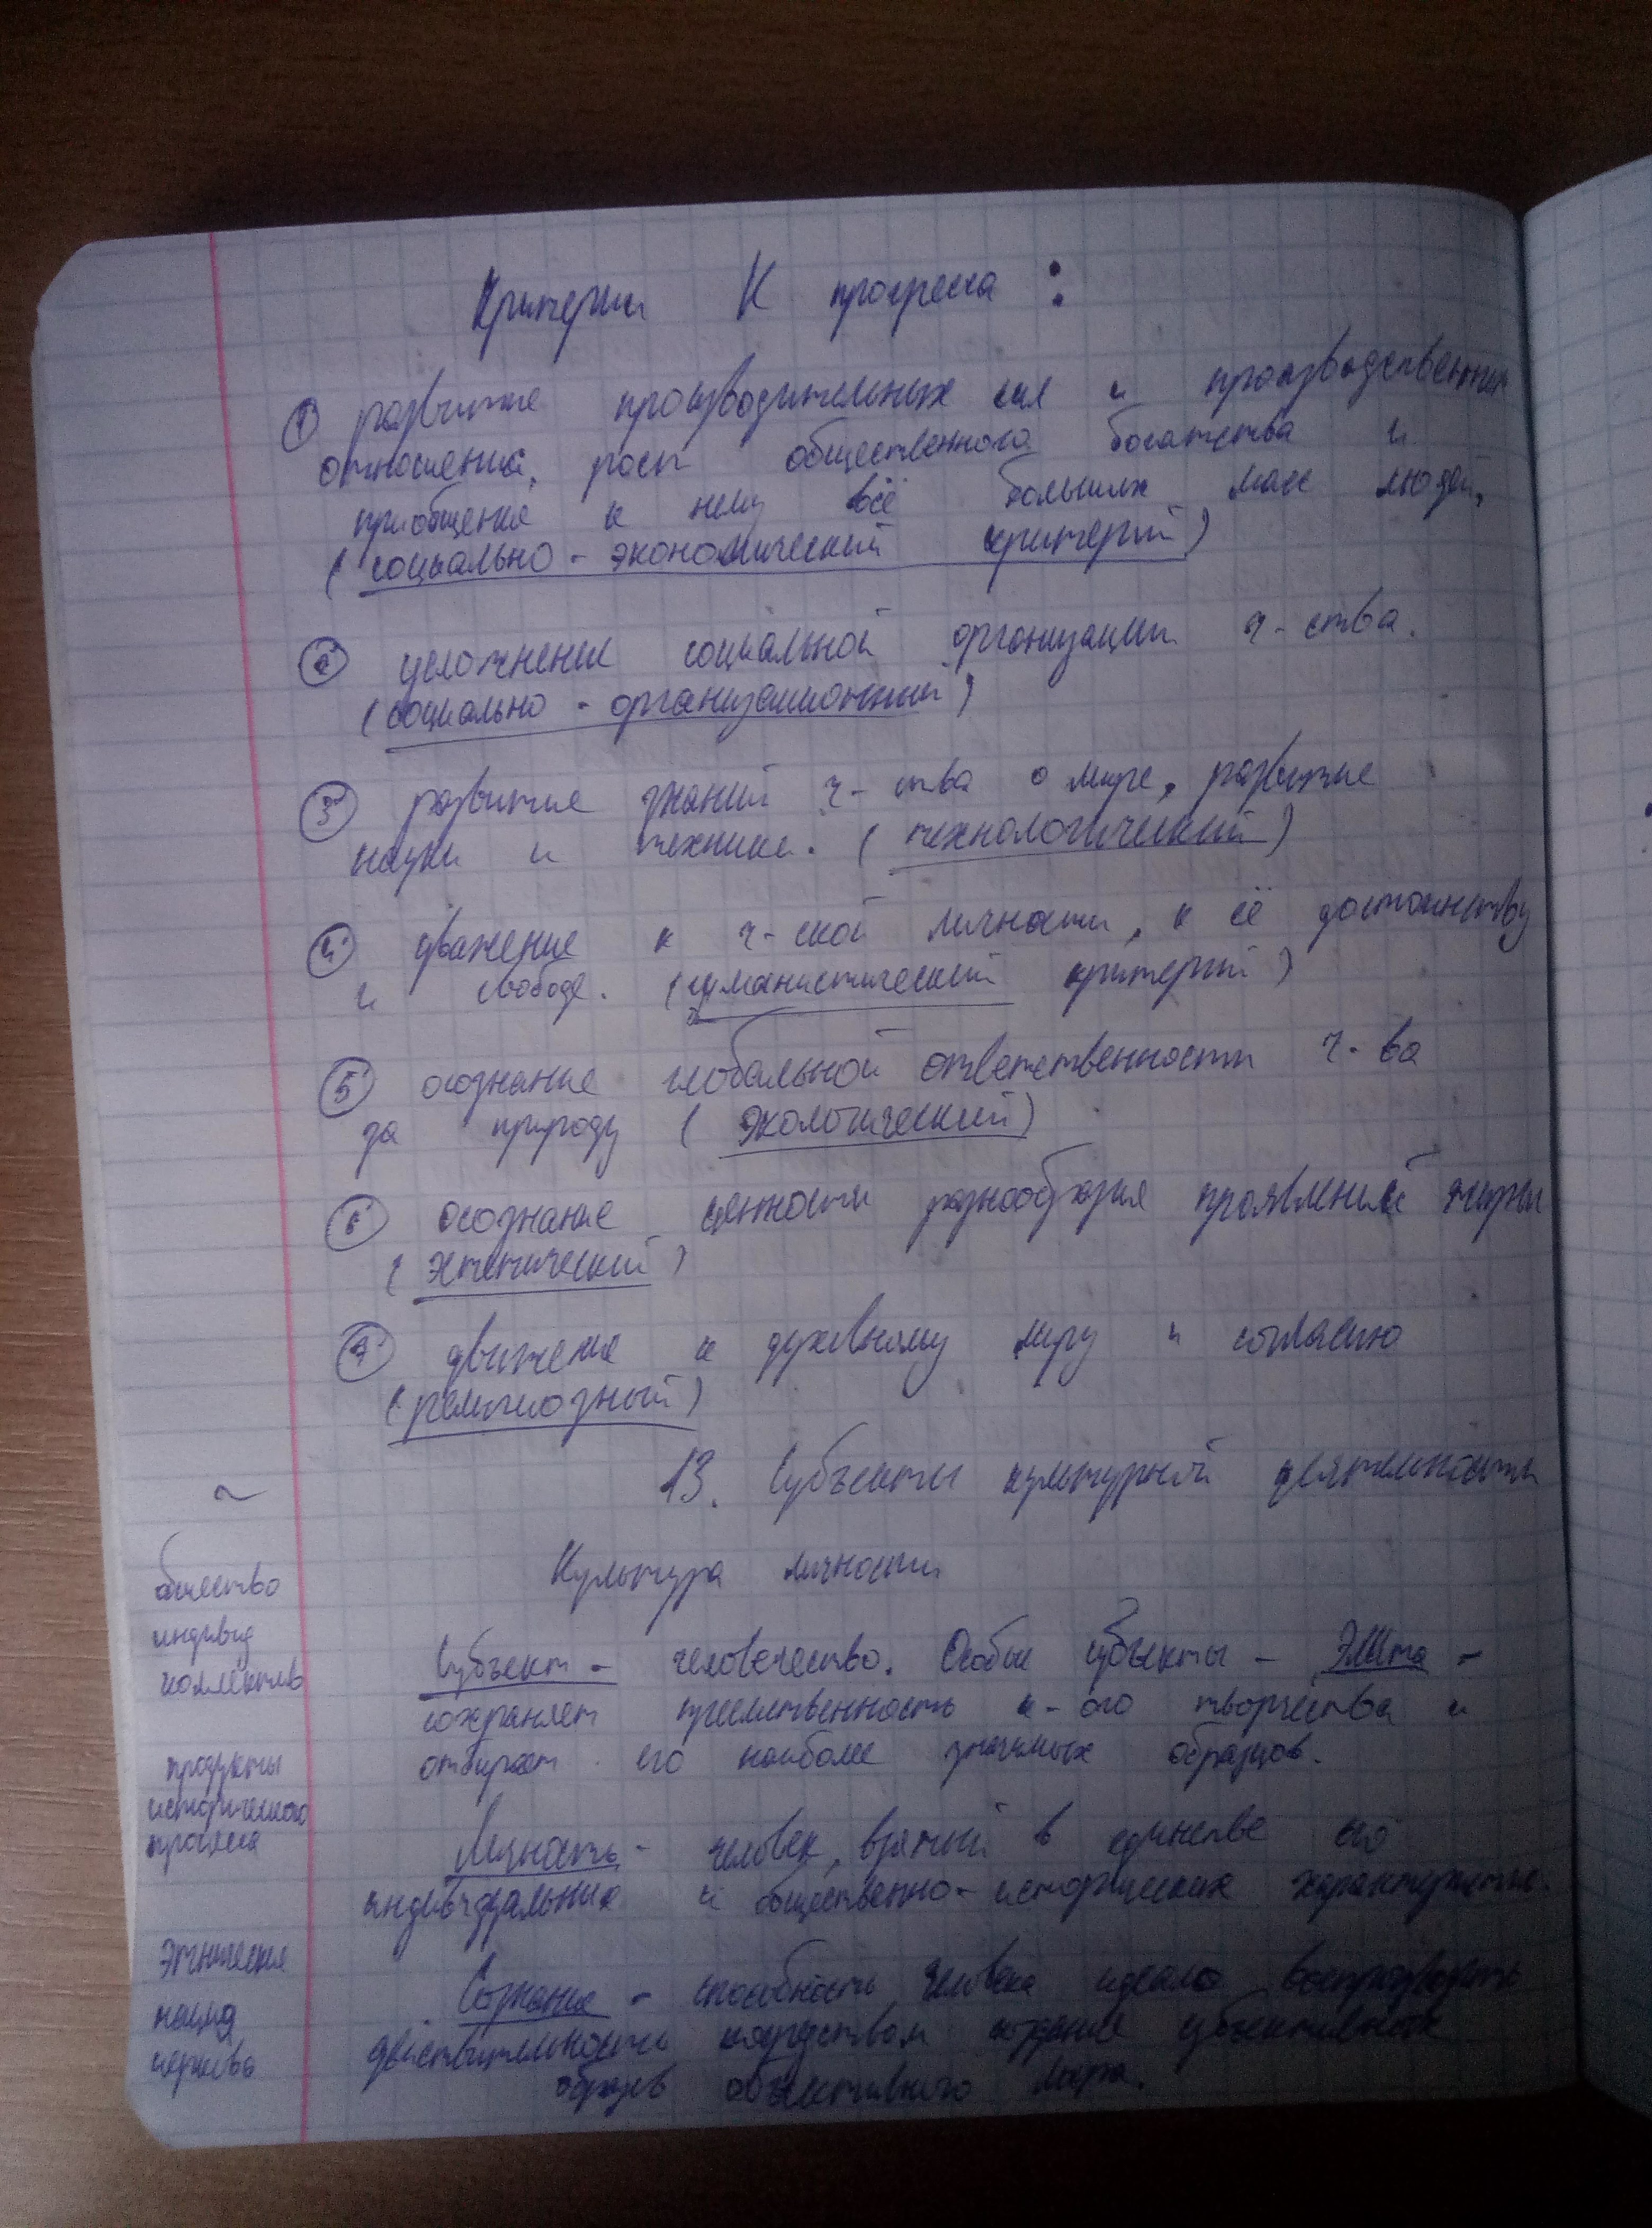 Критерии К прогресса :
① развитие производительных сил и производственных
отношений, рост общественного богатства и
приобщение к нему всё больших масс людей,
( социально - экономический критерий )
② усложнение социальной организации ч - ства.
( социально - организационный )
③ развитие знаний ч - ства о мире, развитие
науки и техники. ( технологический )
④ уважение к ч - ской личности, к её достоинству
и свободе. ( гуманистический критерий )
⑤ осознание глобальной ответственности ч - ва
за природу ( экологический )
⑥ осознание ценности разнообразия проявлений жизни
( эстетический )
⑦ движение к духовному миру и согласию
( религиозный )
~
13. Субъекты культурной деятельности
Культура личности
общество
индивид
коллектив
Субъект - человечество. Особые субъекты - Элита -
сохраняет преемственность к - ого творчества и
отбирает его наиболее значимых образцов.
продукты
исторического
процесса
Личность - человек, взятый в единстве его
индивидуальных и общественно - исторических характеристик.
Этнические
нация
церковь
Сознание - способность человека идеально воспроизводить
действительность посредством создания субъективных
образов объективного мира.